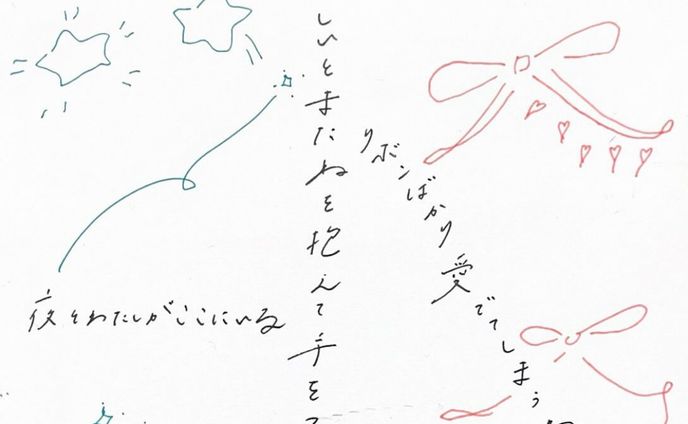 りぼんばかり愛でてしまう
しいとまたねを抱えて手を
夜とわたしがここにいる